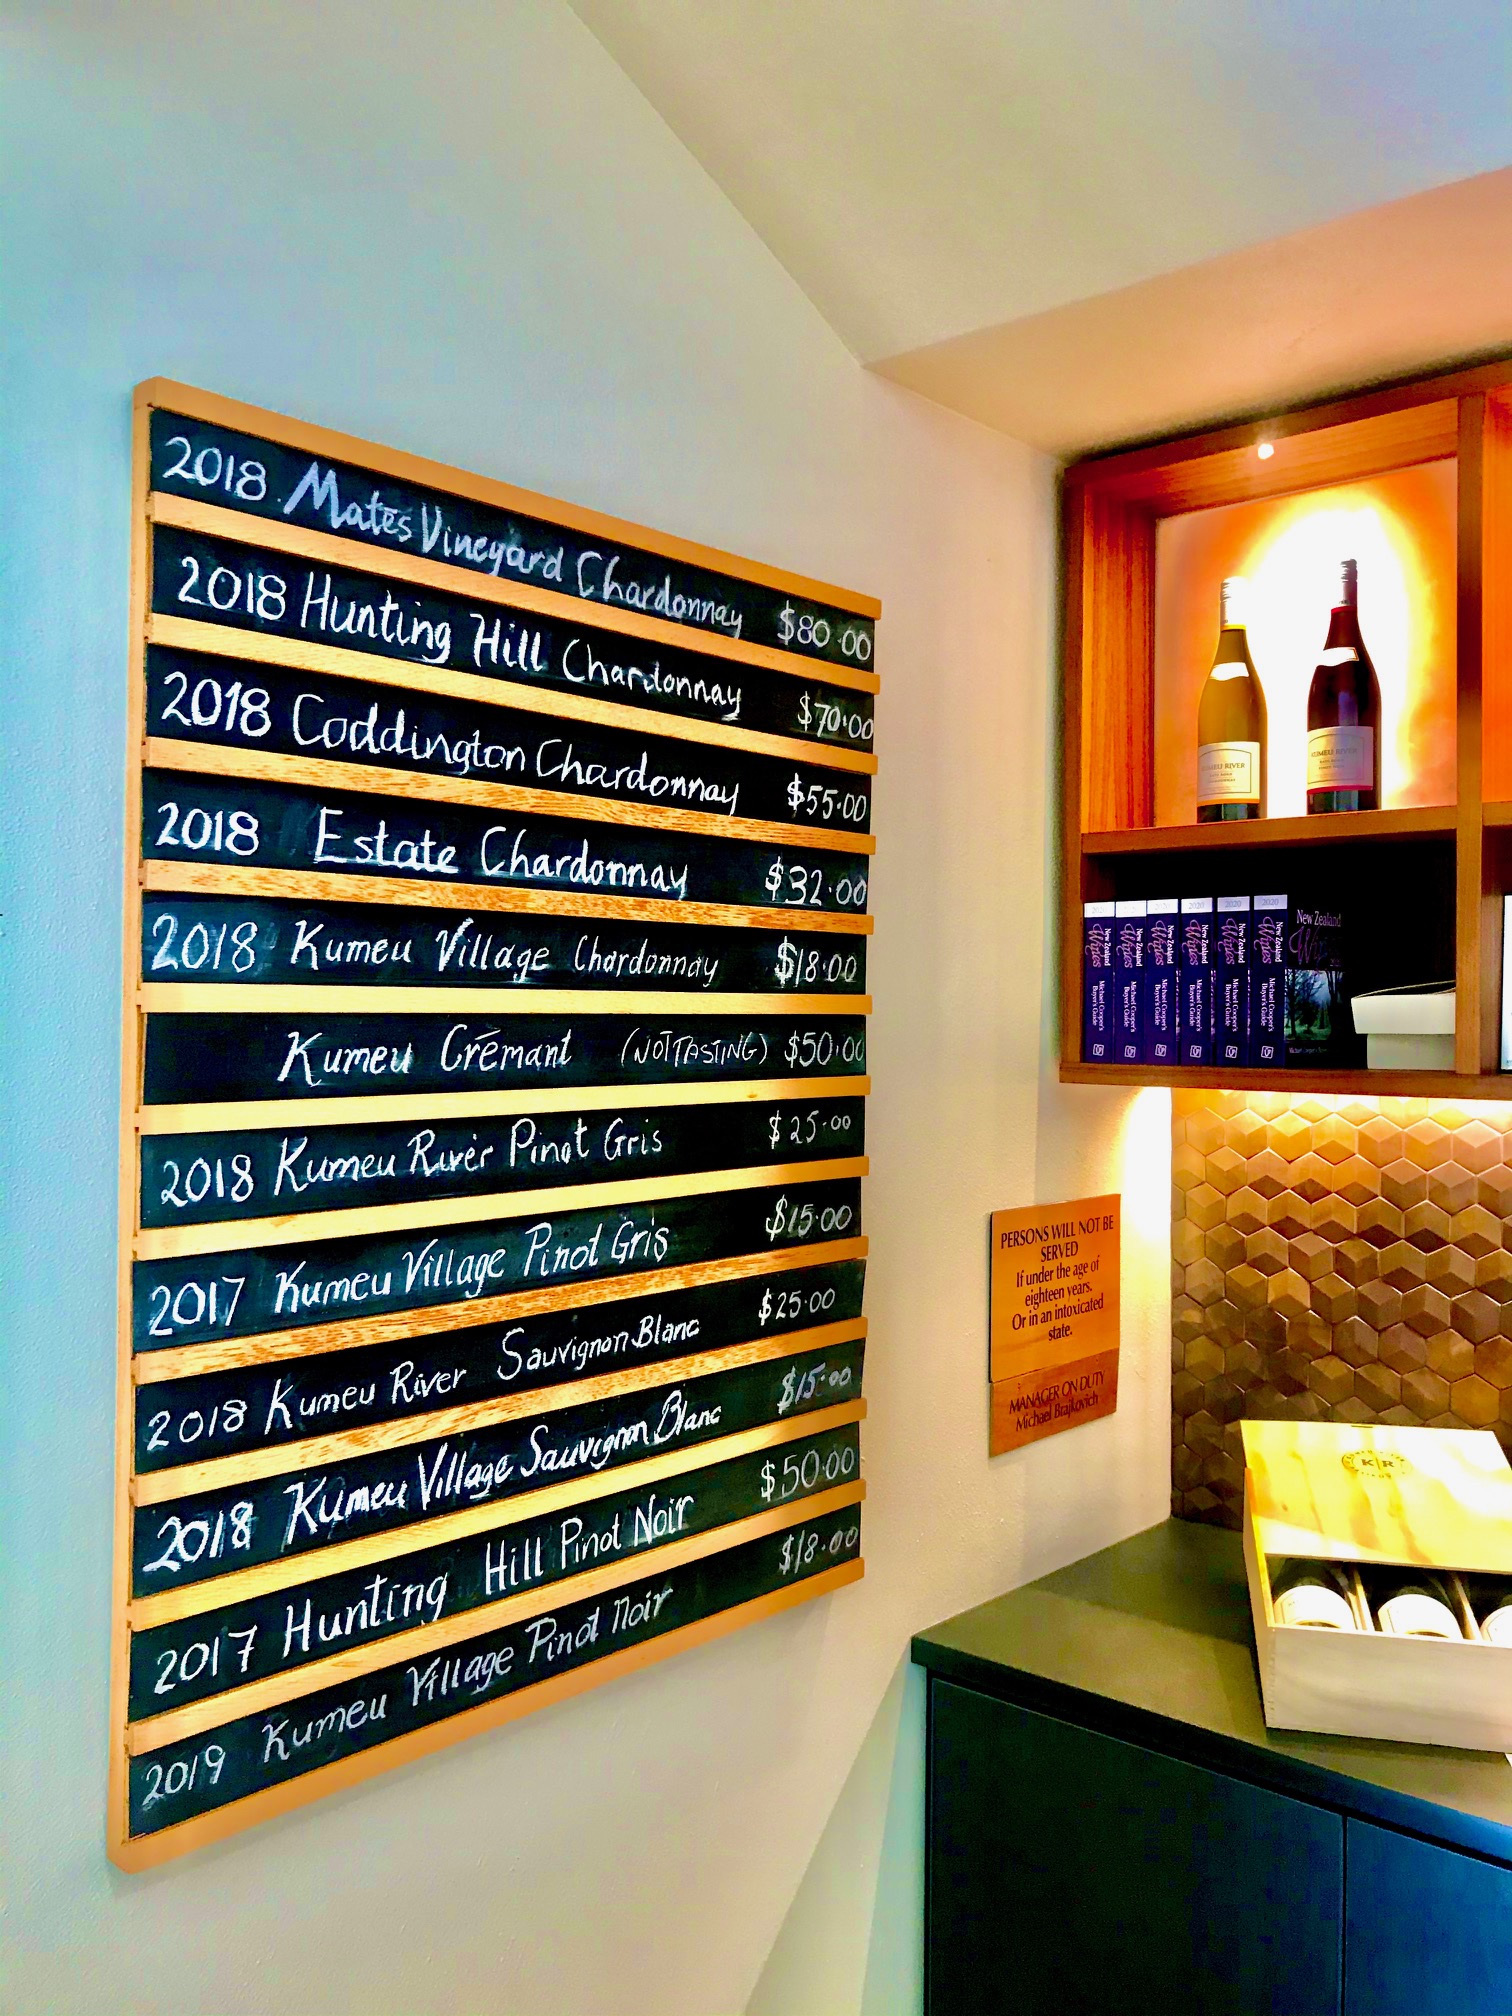 2018 Matēs Vineyard Chardonnay $80.00
2018 Hunting Hill Chardonnay $70.00
2018 Coddington Chardonnay $55.00
2018 Estate Chardonnay $32.00
2018 Kumeu Village Chardonnay $18.00
Kumeu Crémant (NOT TASTING) $50.00
2018 Kumeu River Pinot Gris $25.00
2017 Kumeu Village Pinot Gris $15.00
2018 Kumeu River Sauvignon Blanc $25.00
2018 Kumeu Village Sauvignon Blanc $15.00
2017 Hunting Hill Pinot Noir $50.00
2019 Kumeu Village Pinot Noir $18.00
KUMEU RIVER
KUMEU RIVER
2020 New Zealand Wines Michael Cooper's Buyer's Guide
2020 New Zealand Wines Michael Cooper's Buyer's Guide
2020 New Zealand Wines Michael Cooper's Buyer's Guide
2020 New Zealand Wines Michael Cooper's Buyer's Guide
2020 New Zealand Wines Michael Cooper's Buyer's Guide
2020 New Zealand Wines Michael Cooper's Buyer's Guide
New Zealand
PERSONS WILL NOT BE
SERVED
If under the age of
eighteen years.
Or in an intoxicated
state.
MANAGER ON DUTY
Michael Brajkovich
K R